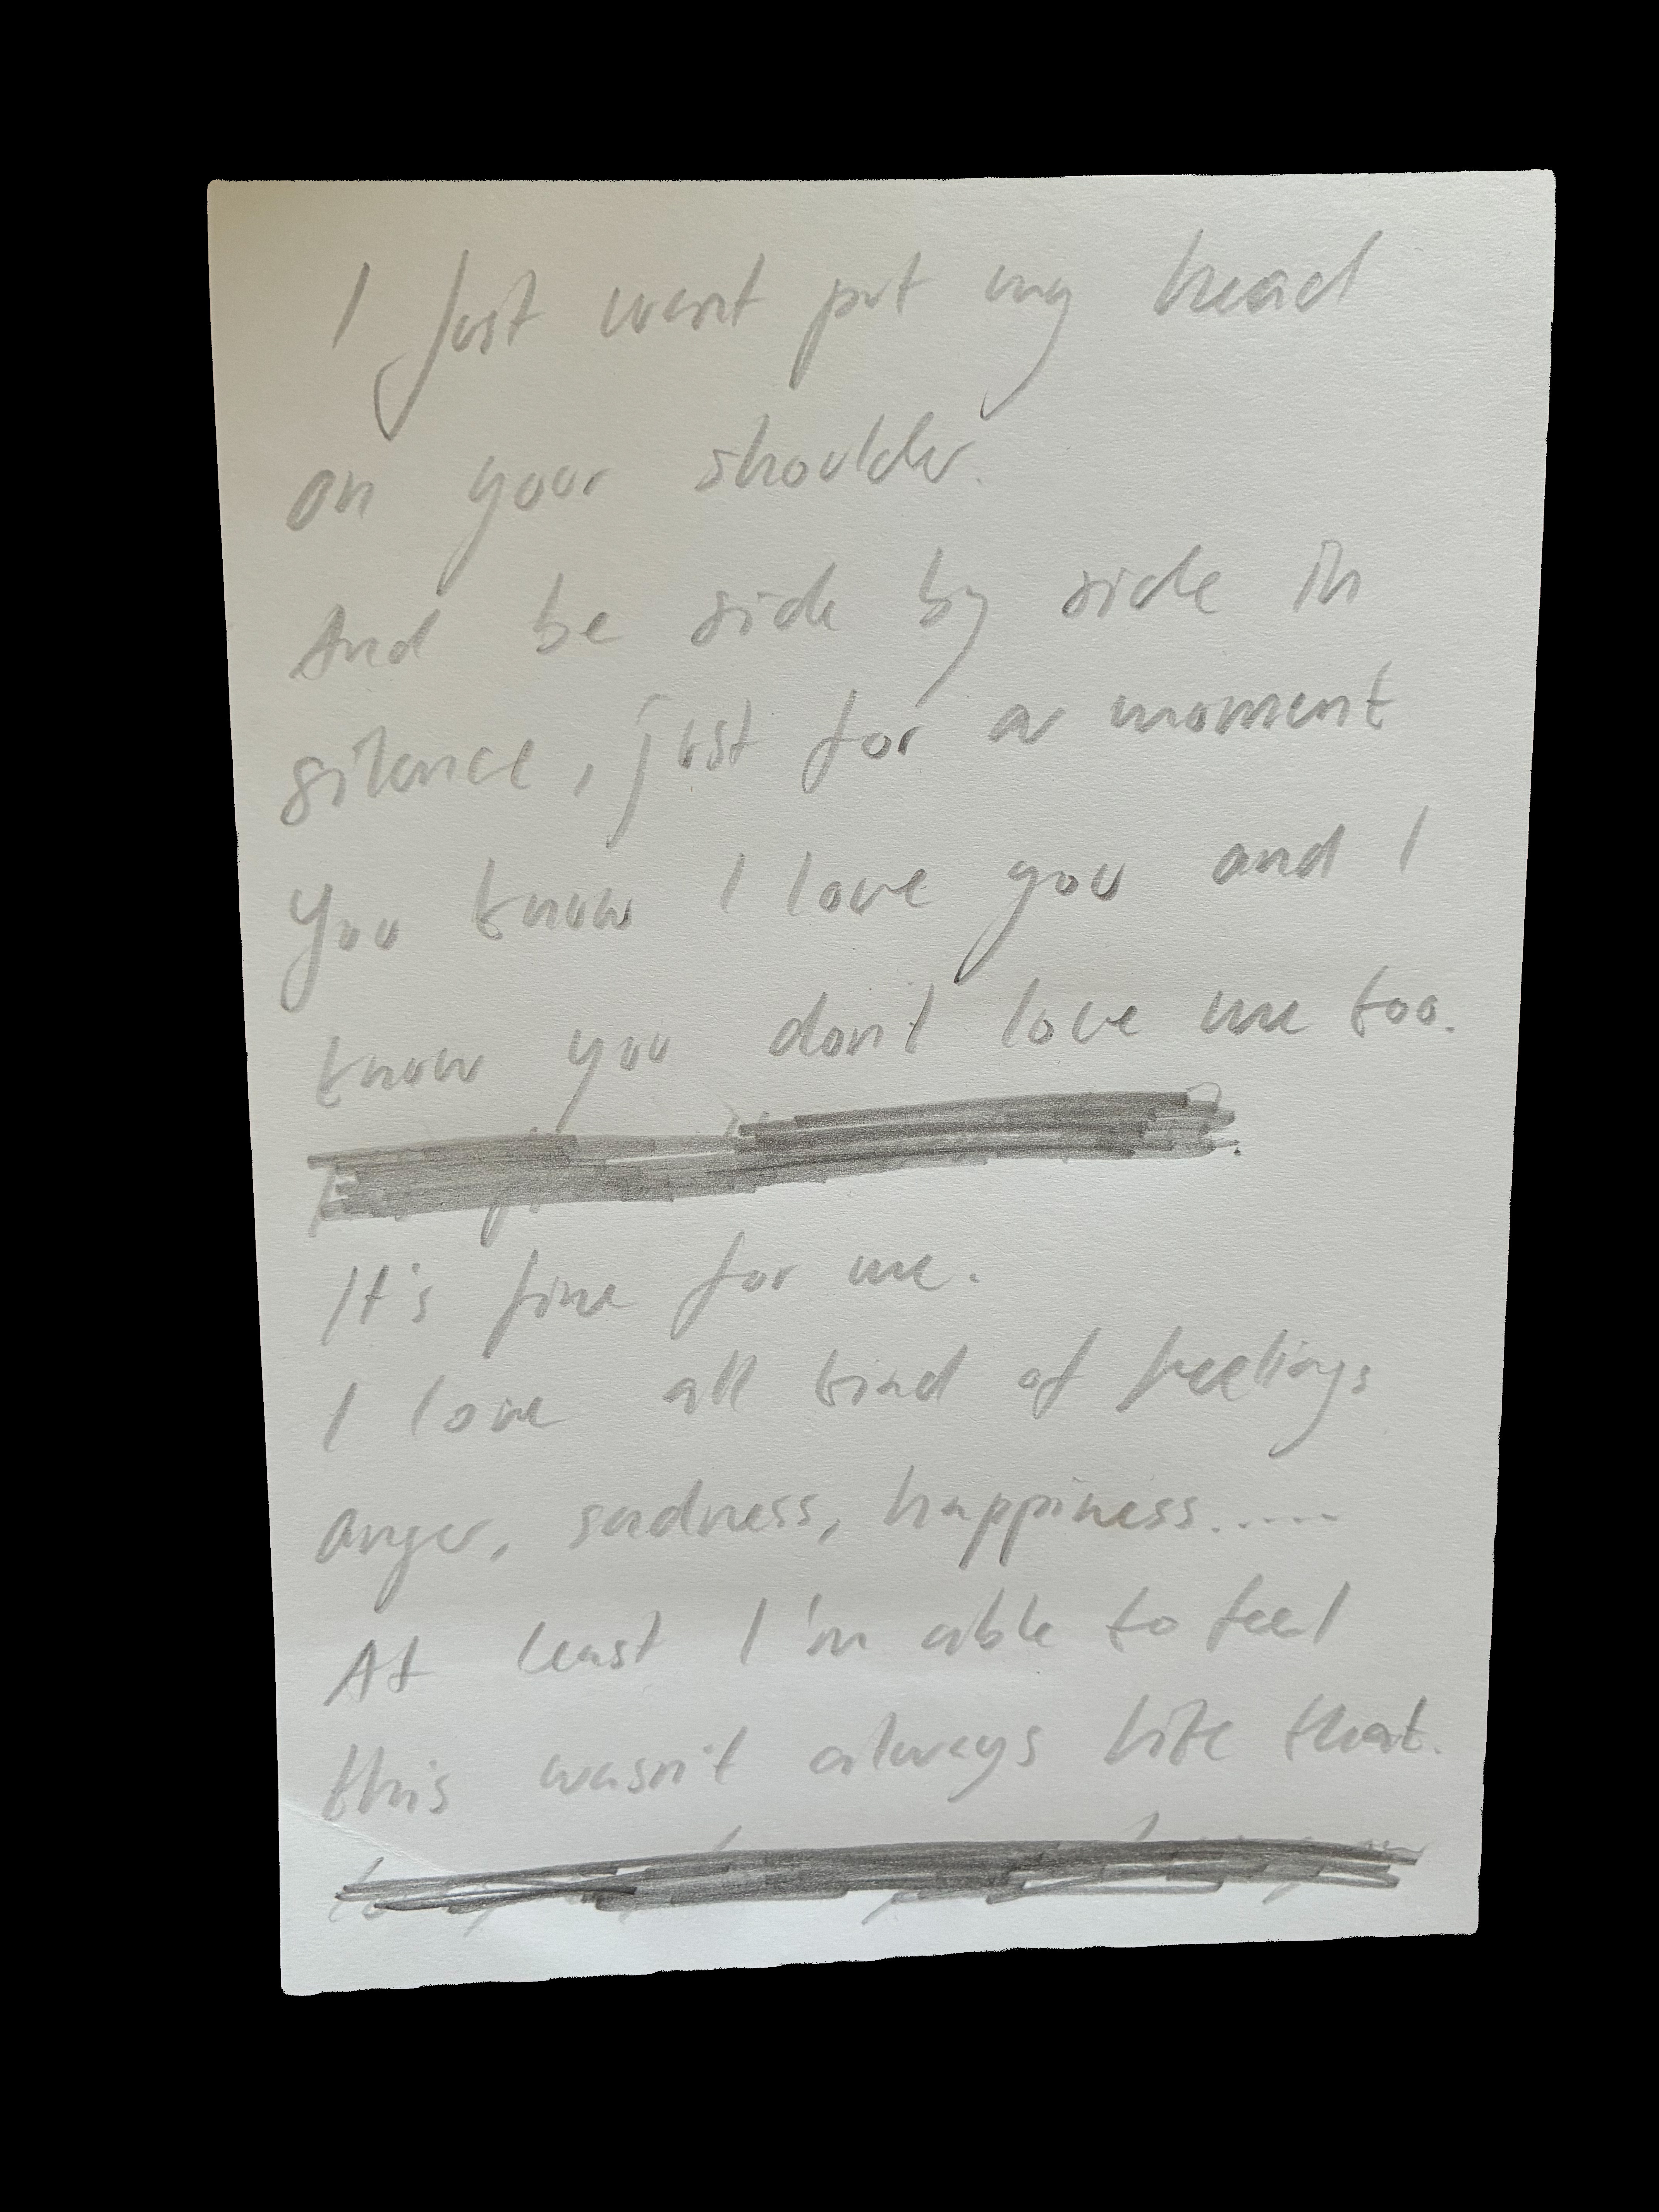 I just want put my head
on your shoulder.
And be side by side in
silence, just for a moment
You know I love you and I
know you don't love me too.
It's fine for me.
I love all kind of feelings
anger, sadness, happiness......
At least I'm able to feel
this wasn't always like that.